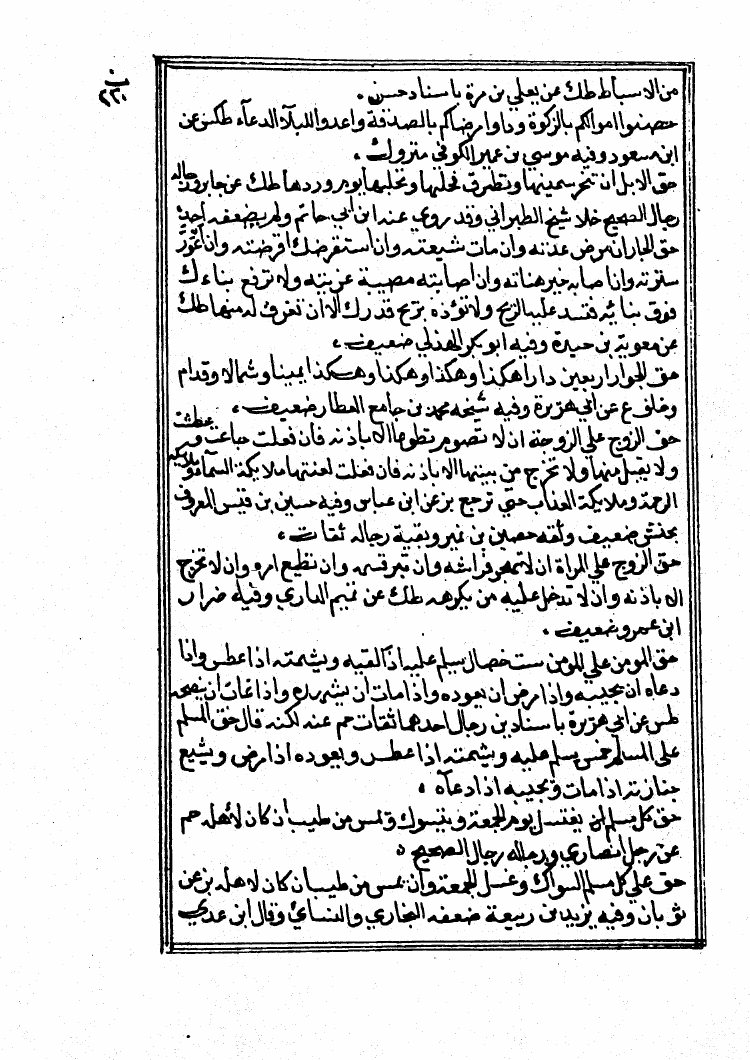 ٢٢٠
من الاسباط طك عن يعلي بن مرة باسناد حسن .
حصنوا اموالكم بالزكوة وداوا مرضاكم بالصدقة واعدوا للبلاء الدعاء طكس عن
ابن مسعود وفيه موسي بن عمير الكوفي متروك .
حق الابل ان تنحر سمينها وتطرق فحلها وتحلبها يوم وردها طك عن جابر ورجاله
رجال الصحيح خلا شيخ الطبراني وقد روي عنه ابن ابي حاتم ولم يضعفه احد
حق الجار ان مرض عدته وان مات شيعته وان استقرضك اقرضته وان اعوز
سترته وان اصابه خير هناته وان اصابته مصيبة عزيته ولا ترفع بناءك
فوق بنائه فتسد عليه الريح ولا تؤذه بريح قدرك الا ان تغرف له منها طك
عن معوية بن حيدة وفيه ابو بكر الهذلي ضعيف .
حق الجوار اربعين دارا هكذا وهكذا وهكذا وهكذا يمينا وشمالا وقدام
وخلف ع عن ابي هريرة وفيه شيخه محمد بن جامع العطار ضعيف .
حق الزوج علي الزوجة ان لا تصوم تطوعا الا باذنه فان فعلت جاعت وعطشت
ولا يقبل منها ولا تخرج من بيتها الا باذنه فان فعلت لعنتها ملايكة السماء وملايكة
الرحمة وملايكة العذاب حتي ترجع بز عن ابن عباس وفيه حسين بن قيس المعروف
بحنش ضعيف وثقه حصين بن نمير وبقية رجاله ثقات .
حق الزوج علي المراة ان لا تهجر فراشه وان تبر قسمه وان تطيع امره وان لا تخرج
الا باذنه وان لا تدخل عليه من يكرهه طك عن تميم الداري وفيه ضرار
ابن عمرو ضعيف .
حق المومن علي المومن ست خصال يسلم عليه اذا لقيه ويشمته اذا عطس واذا
دعاه ان يجيبه واذا مرض ان يعوده واذا مات ان يشهده واذا غاب ان ينصحه
طس عن ابي هريرة باسناد بن رجال احدهما ثقات حم عنه لكنه قال حق المسلم
علي المسلم خمس يسلم عليه ويشمته اذا عطس ويعوده اذا مرض ويشيع
جنازته اذا مات ويجيبه اذا دعاه .
حق كل مسلم ان يغتسل يوم الجمعة ويتسوك ويمس من طيب ان كان لاهله حم
عن رجل انصاري ورجاله رجال الصحيح .
حق علي كل مسلم السواك وغسل الجمعة وان يمس من طيب ان كان لاهله بز عن
ثوبان وفيه يزيد بن ربيعة ضعفه البخاري والنساي وقال ابن عدي